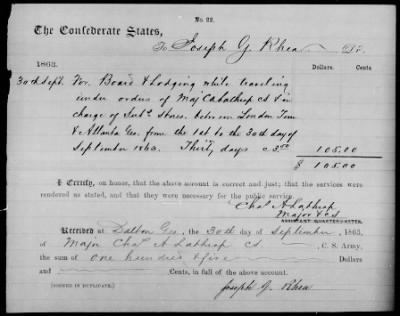 No. 22.
The Confederate States,
To Joseph G. Rhea Dr.
Dollars. Cents
1863.
30th Sept. For Board & Lodging while traveling
under orders of Maj C A Lathrop CS & in
charge of Subs. Stores between Loudon Tenn
& Atlanta Geo. from the 1st to the 30th day of
September 1863. Thirty days @ 3.50 105.00
$ 105.00
I Certify, on honor, that the above account is correct and just; that the services were
rendered as stated, and that they were necessary for the public service.
Chas A Lathrop
Major & CS
ASSISTANT QUARTERMASTER.
Received at Dalton Geo, the 30th day of September, 1863,
of Major Chas A Lathrop CS, C. S. Army,
the sum of One hundred & five Dollars
and Cents, in full of the above account.
(SIGNED IN DUPLICATE.) Joseph G. Rhea